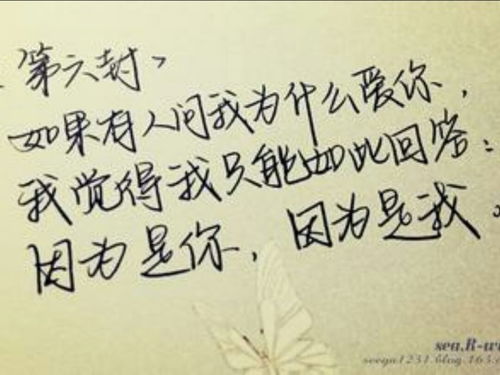 《第六封》
如果有人问我为什么爱你，
我觉得我只能如此回答：
因为是你，因为是我。
sea.R-wi
seega1231.blog.163.c